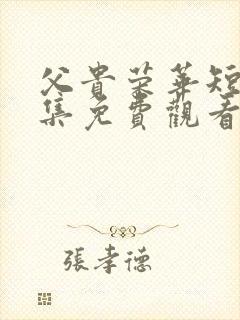 父貴榮華短
集免費觀看
張孝德